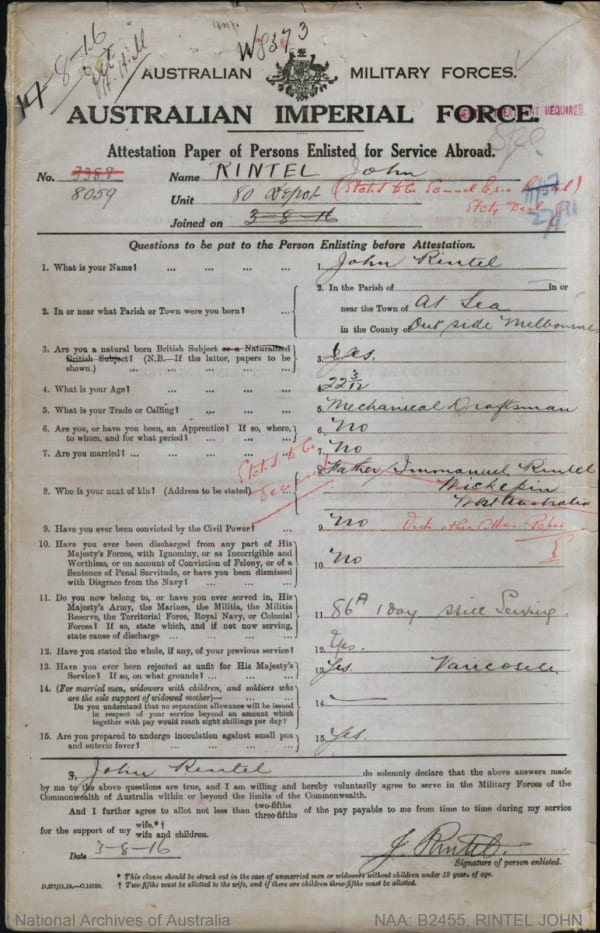 W8373
17-8-16
AUSTRALIAN MILITARY FORCES.
AUSTRALIAN IMPERIAL FORCE.
REQUIRED
Attestation Paper of Persons Enlisted for Service Abroad.
No. 3388 Name RINTEL John
8059 Unit 80 Depot (Stated to be Samuel
Joined on 3-8-16 Staty. Decl.
Questions to be put to the Person Enlisting before Attestation.
1. What is your Name? ... ... ... ... 1. John Rintel
2. In or near what Parish or Town were you born? ... 2. In the Parish of in or
near the Town of At Sea
in the County of Out side Melbourne
3. Are you a natural born British Subject or a Naturalized
British Subject? (N.B.—If the latter, papers to be
shown.) ... ... ... ... ... 3. Yes.
4. What is your Age? ... ... ... 4. 22 3/12
5. What is your Trade or Calling? ... ... ... 5. Mechanical Draftsman
6. Are you, or have you been, an Apprentice? If so, where,
to whom, and for what period? ... ... ... 6. No
7. Are you married? ... ... ... ... 7. No
Stated to be
Deceased
8. Who is your next of kin? (Address to be stated) ... 8. Father, Immanuel Rintel
Wickepin
West Australia
9. Have you ever been convicted by the Civil Power? ... 9. No Vide other
10. Have you ever been discharged from any part of His
Majesty's Forces, with Ignominy, or as Incorrigible and
Worthless, or on account of Conviction of Felony, or of a
Sentence of Penal Servitude, or have you been dismissed
with Disgrace from the Navy? ... ... ... 10. No
11. Do you now belong to, or have you ever served in, His
Majesty's Army, the Marines, the Militia, the Militia
Reserve, the Territorial Force, Royal Navy, or Colonial
Forces? If so, state which, and if not now serving,
state cause of discharge ... ... ... 11. 86A 1 Day still Serving
12. Have you stated the whole, if any, of your previous service? 12. Yes.
13. Have you ever been rejected as unfit for His Majesty's
Service? If so, on what grounds? ... ... 13. Yes. Varicosele
14. (For married men, widowers with children, and soldiers who
are the sole support of widowed mother)—
Do you understand that no separation allowance will be issued
in respect of your service beyond an amount which
together with pay would reach eight shillings per day? 14. —
15. Are you prepared to undergo inoculation against small pox
and enteric fever? ... ... ... ... 15. Yes.
I, John Rintel do solemnly declare that the above answers made
by me to the above questions are true, and I am willing and hereby voluntarily agree to serve in the Military Forces of the
Commonwealth of Australia within or beyond the limits of the Commonwealth.
And I further agree to allot not less than two-fifths three-fifths of the pay payable to me from time to time during my service
for the support of my wife.*† wife and children.
Date 3-8-16 J. Rintel.
Signature of person enlisted.
* This clause should be struck out in the case of unmarried men or widowers without children under 18 year. of age.
† Two-fifths must be allotted to the wife, and if there are children three-fifths must be allotted.
National Archives of Australia NAA: B2455, RINTEL JOHN